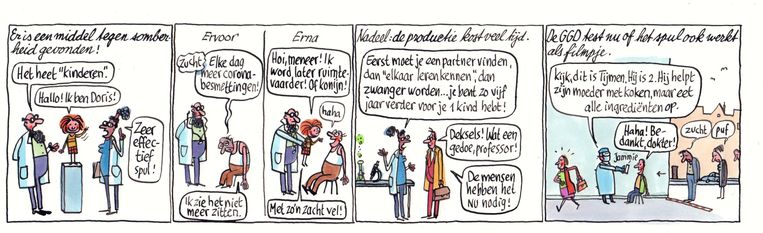 Er is een middel tegen somber-
heid gevonden!
Het heet "kinderen".
Hallo! Ik ben Doris!
Zeer
effec-
tief
spul!
Ervoor
Zucht
Elke dag
meer corona-
besmettingen!
Ik zie het niet
meer zitten.
Erna
Hoi, meneer! Ik
word later ruimte-
vaarder! Of konijn!
haha
Met zo'n zacht vel!
Nadeel: de productie kost veel tijd.
Eerst moet je een partner vinden,
dan "elkaar leren kennen", dan
zwanger worden... je bent zo vijf
jaar verder voor je 1 kind hebt!
Deksels! Wat een
gedoe, professor!
De mensen
hebben het
nu nodig!
De GGD test nu of het spul ook werkt
als filmpje.
Kijk, dit is Tijmen. Hij is 2. Hij helpt
zijn moeder met koken, maar eet
alle ingrediënten op.
Jammie
Haha! Be-
dankt, dokter!
zucht
puf